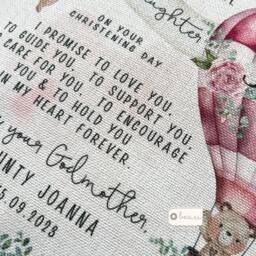 daughter,
ON YOUR
CHRISTENING DAY
I PROMISE TO LOVE YOU.
TO GUIDE YOU. TO SUPPORT YOU.
CARE FOR YOU. TO ENCOURAGE
YOU & TO HOLD YOU
IN MY HEART FOREVER
your Godmother,
UNTY JOANNA
5.09.2028